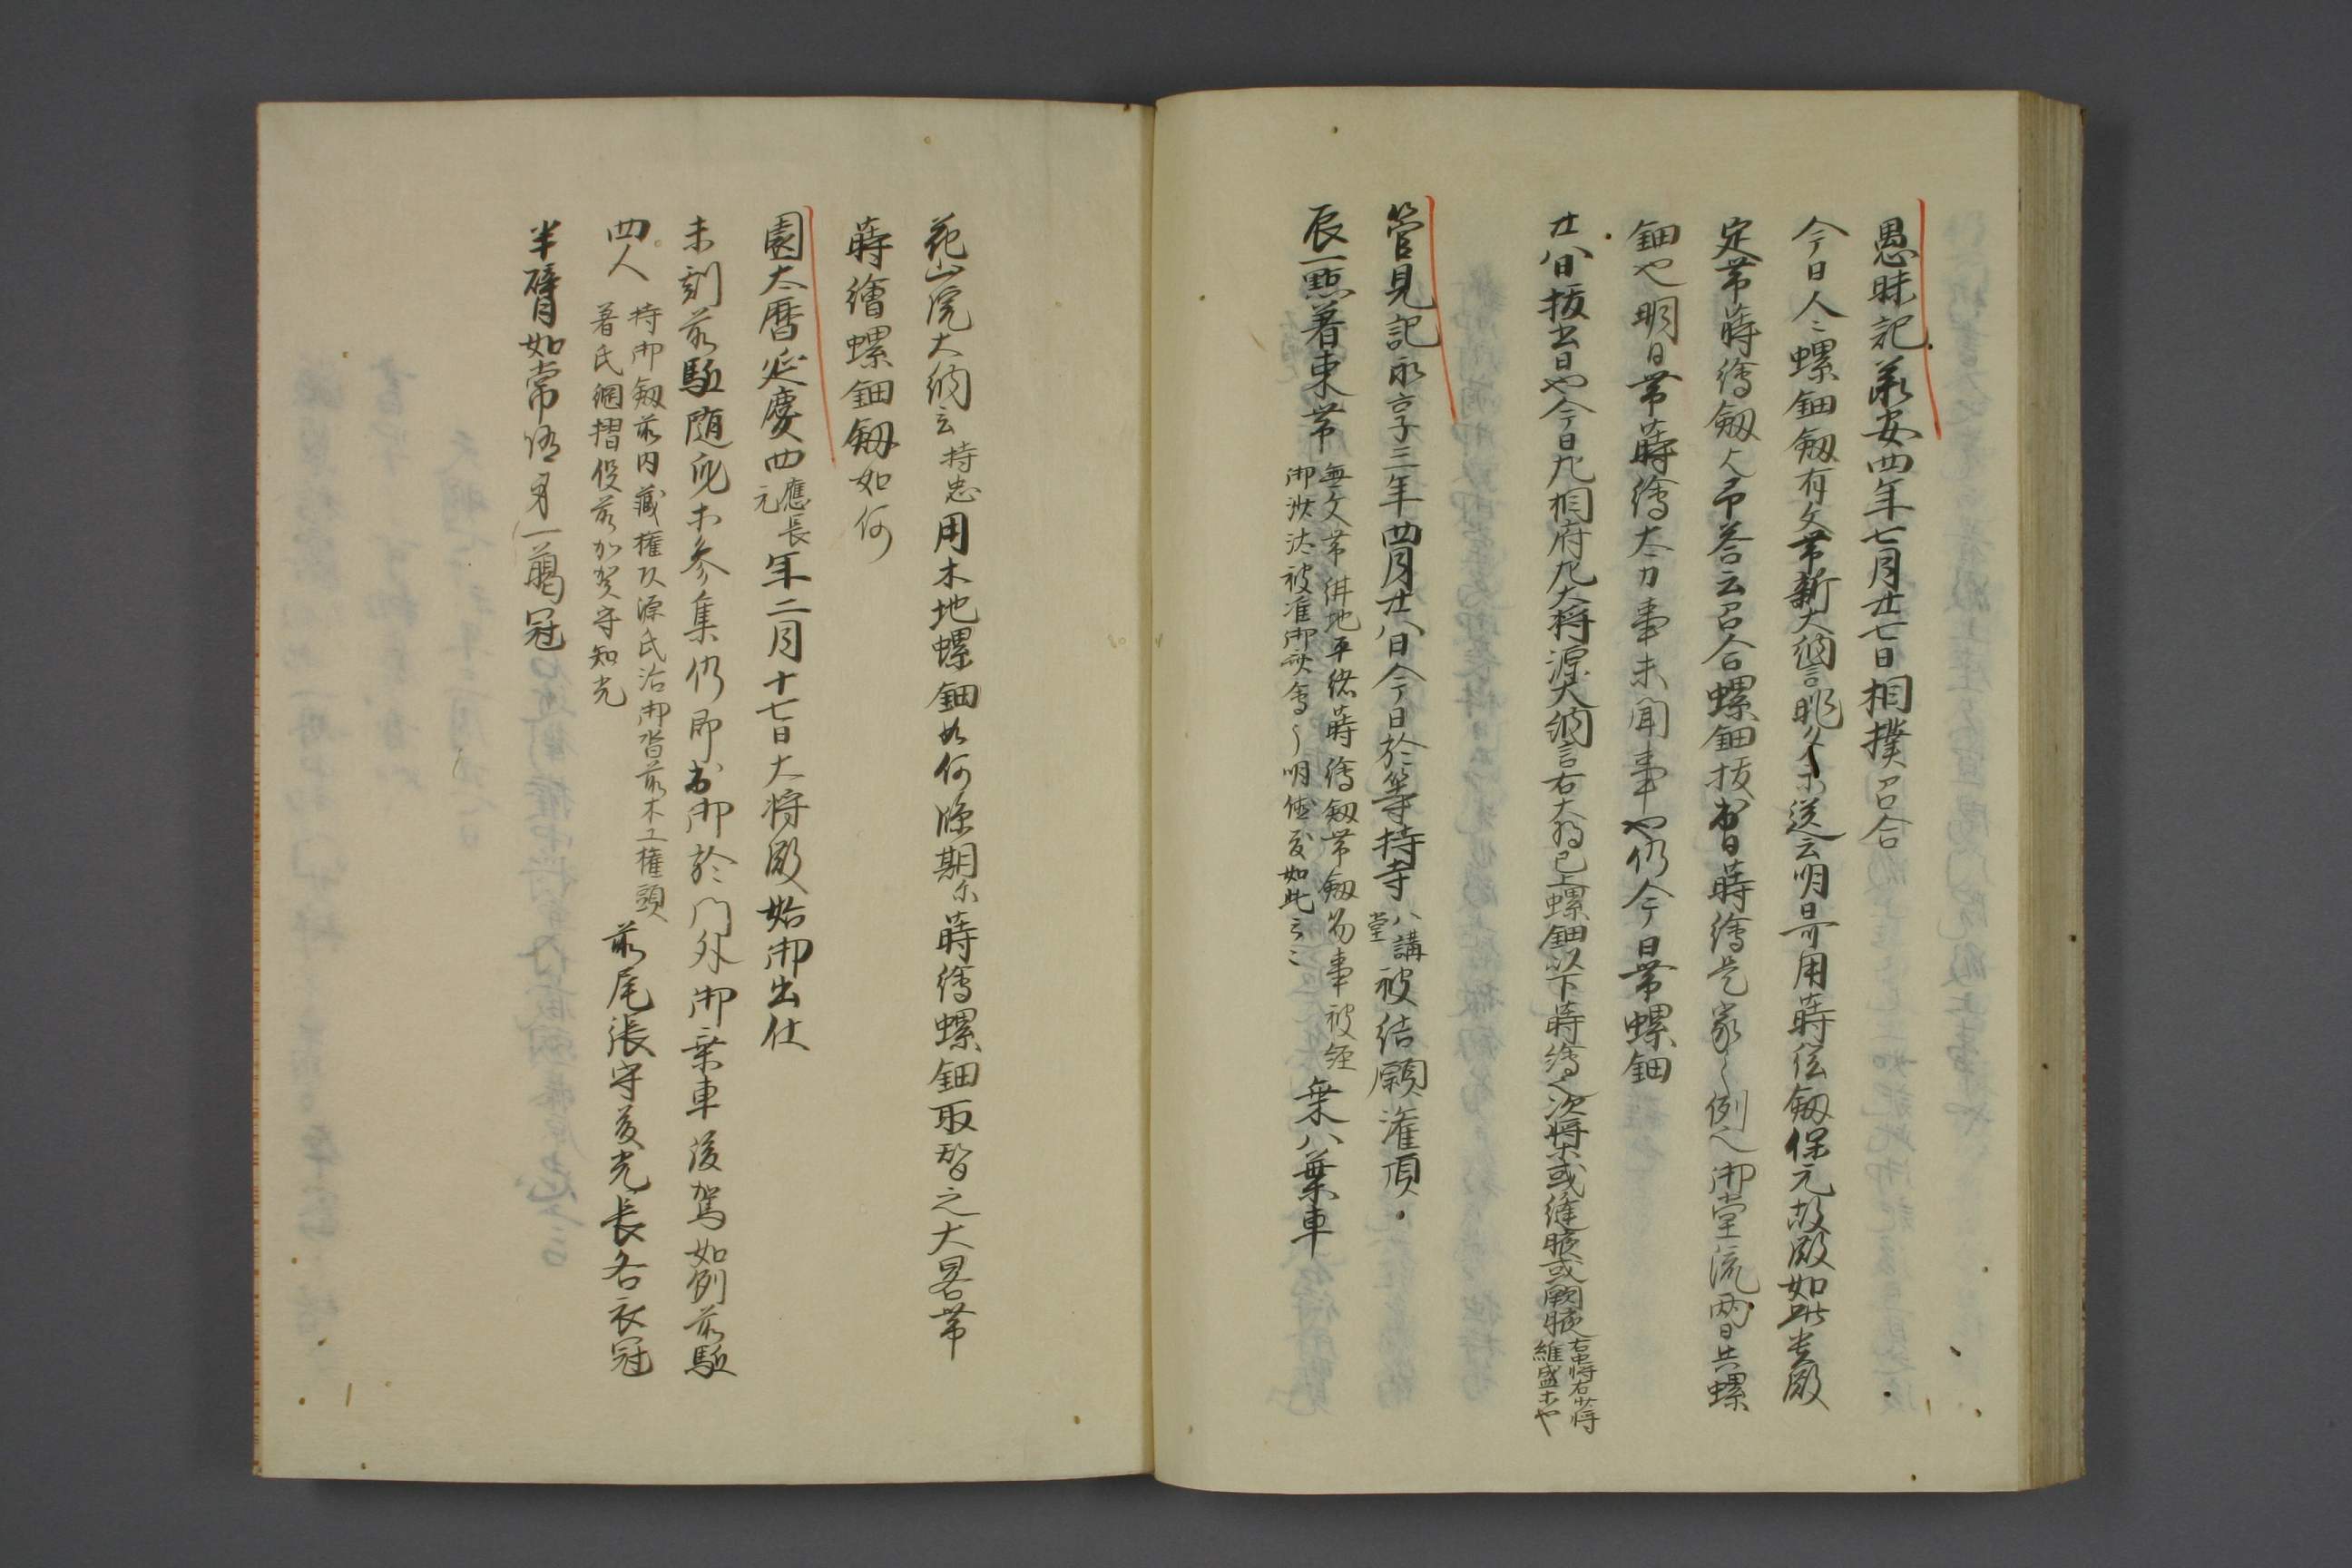 愚昧記 承安四年七月廿七日相撲召合
今日人々螺鈿劔有文帯新大納言送云明日可用蒔絵劔保元故殿如此貴殿
定帯蒔繪劔予答云召合螺鈿抜出日蒔繪是家之例也御堂流両日共螺
鈿也明日帯蒔繪太刀事未聞事也仍今日帯螺鈿
廿八日抜出日也今日左相府左大将源大納言右大将已上螺鈿以下蒔繪也次将等或縫腋或闕腋 右中将右少将
維盛等也
管見記 永享三年四月廿八日今日於等持寺 八講
堂 被結願灌頂
辰一點着束帯 無文帯紺地平緒蒔繪劔帯劔易事被経
御沙汰被准御齋會之明徳度如此云々 乗八葉車
花山院大納云 持忠 用木地螺鈿如何臨期尓蒔繪螺鈿取替之大畧帯
蒔繪螺鈿劔如何
園太暦 延慶四 應長
元 年二月十七日大将殿始御出仕
未刻前駈随身等参集仍即出御於門外御乗車後駕如例前駈
四人 持御劔前内蔵権頭源氏治御沓前木工権頭
着氏網摺役前加賀守知光 前尾張守長各衣冠
半臂如常随身一﨟冠